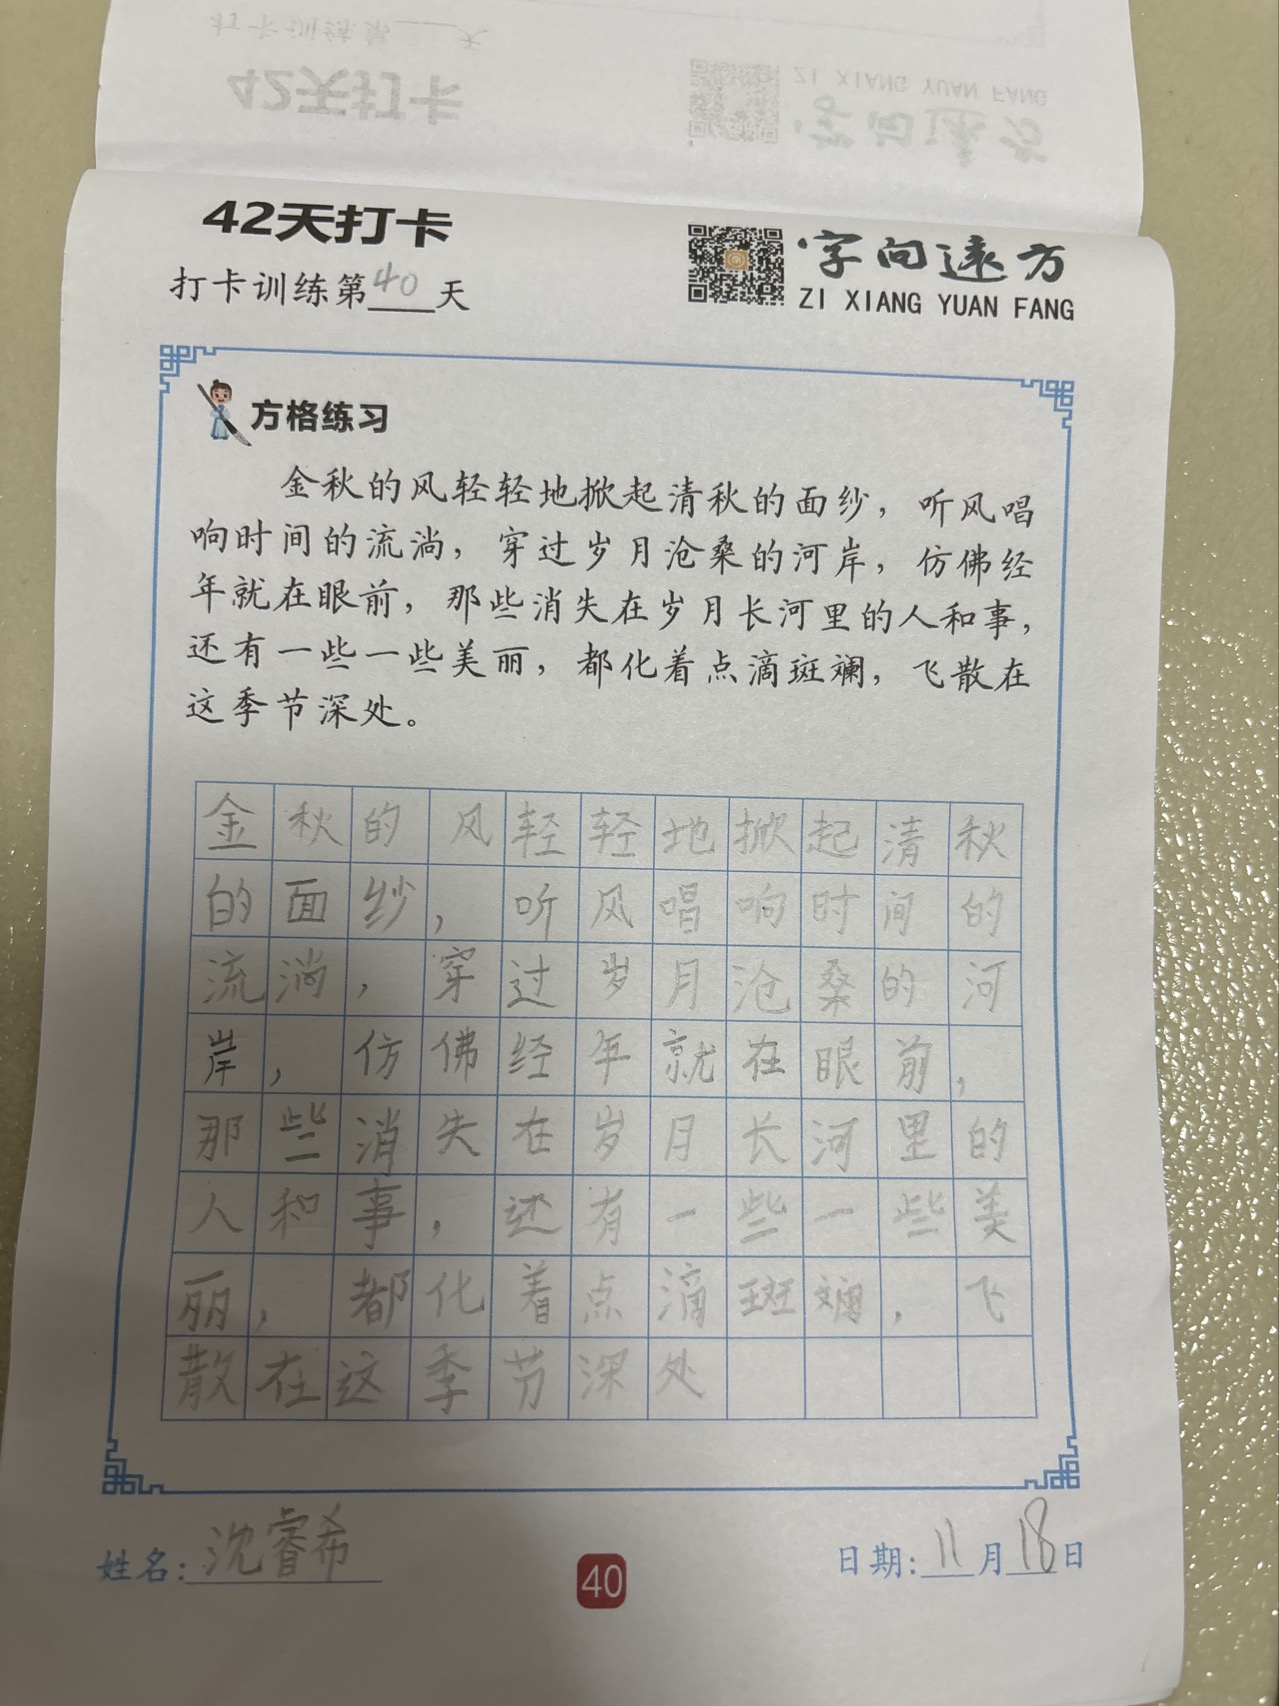 打卡训练第___天
42天打卡
ZI XIANG YUAN FANG
字向远方
42天打卡
打卡训练第40天
字向远方
ZI XIANG YUAN FANG
方格练习
金秋的风轻轻地掀起清秋的面纱，听风唱
响时间的流淌，穿过岁月沧桑的河岸，仿佛经
年就在眼前，那些消失在岁月长河里的人和事，
还有一些一些美丽，都化着点滴斑斓，飞散在
这季节深处。
金秋的风轻轻地掀起清秋
的面纱，听风唱响时间的
流淌，穿过岁月沧桑的河
岸，仿佛经年就在眼前，
那些消失在岁月长河里的
人和事，还有一些一些美
丽，都化着点滴斑斓，飞
散在这季节深处
姓名：沈睿希
40
日期：11月18日